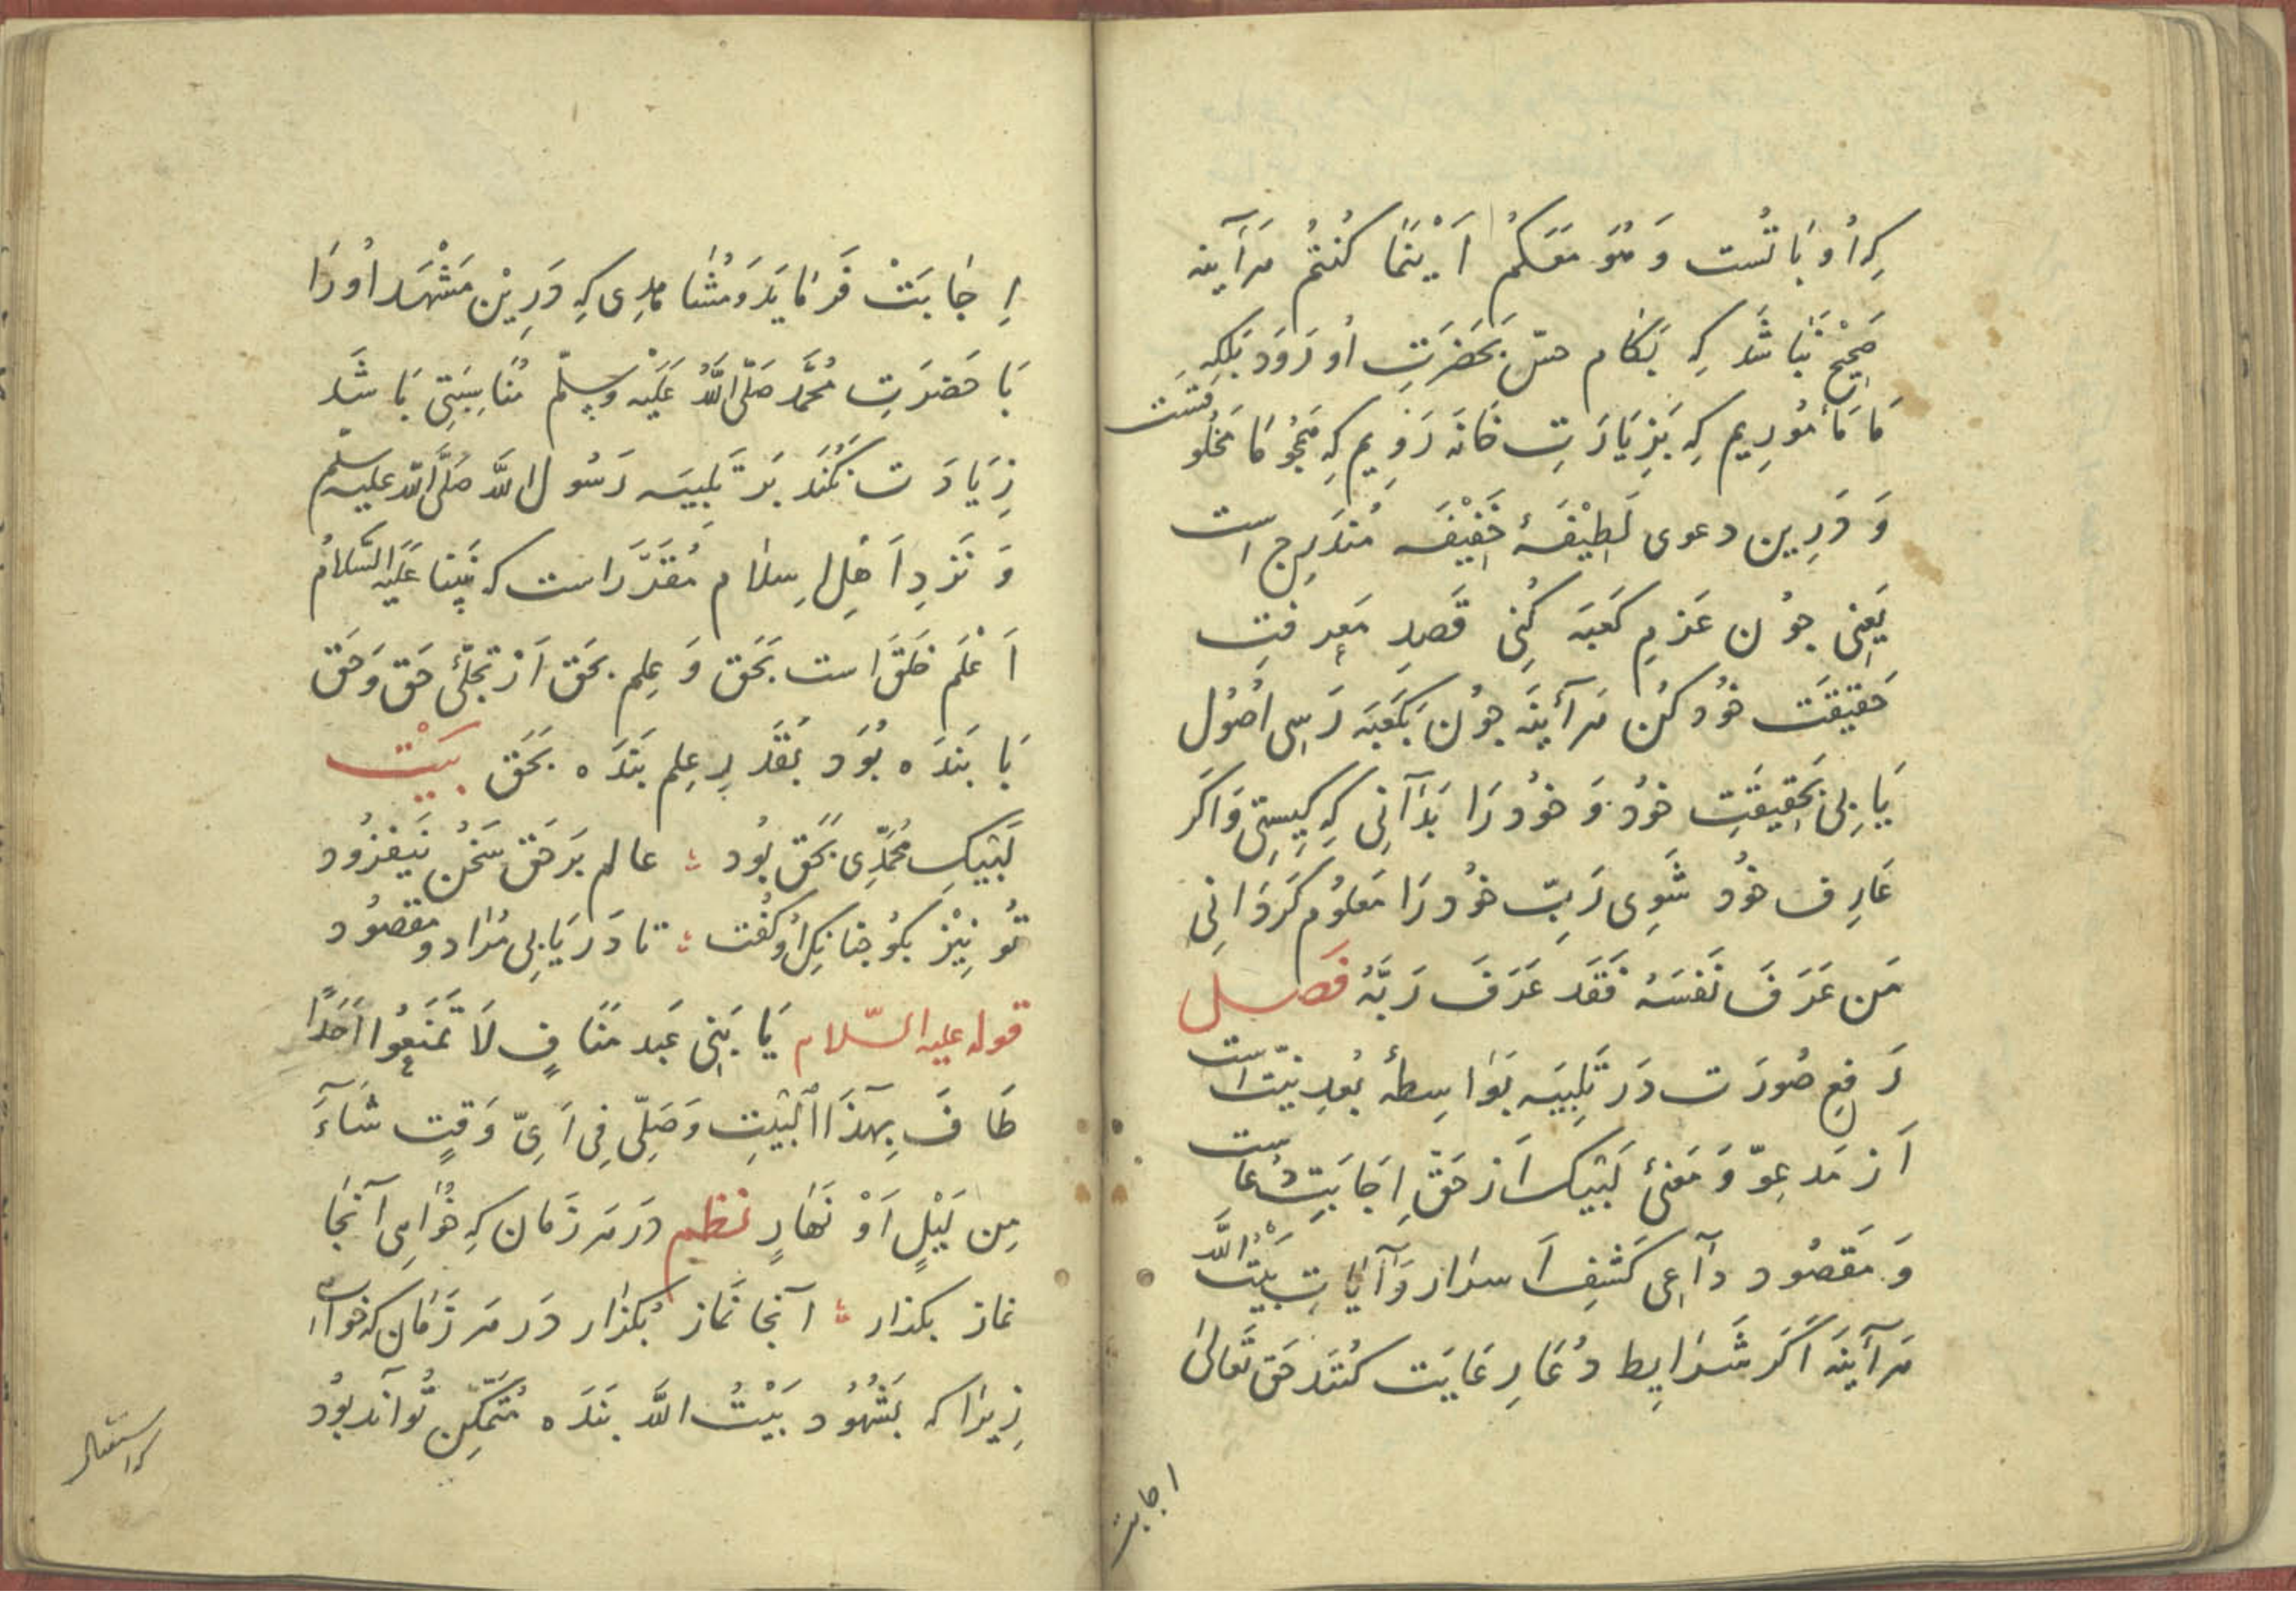 کِه اُو بَا تُست وَ هُوَ مَعَکُم اَیْنَمَا کُنتُم هَرآینه
صَحِیْح نَبَاشَد کِه بَکَام حسّ بَحَضرَتِ اُو رَوَد بَلکِه
مَا مَأمُورِیم کِه بَزِیَارَتِ خَانَه رَوِیم کِه هَمچُو مَا مَخلُوقَست
وَ دَرِین دعوی لَطِیْفَهٔ خَفِیْفَه مُندَرِج است
یَعنِی چُون عَزمِ کَعبَه کُنِی قَصدِ مَعرِفتِ
حَقِیقَت خُود کُن هَرآیٔنَه چُون بَکَعبَه رَسِی اُصُول
یَابِی بَحَقِیقَتِ خُود وَ خُود رَا بَدَآنِی کِه کِیستِی وَاکَر
عَارِف خُود شَوِی رَبّ خُود رَا مَعلُوم کَردَانِی
مَن عَرَفَ نَفسَهُ فَقَد عَرَفَ رَبَّهُ فَصل
رَفعِ صُورَت دَر تَلبِیَه بَوَاسِطهٔ بُعدِ نیّت است
اَز مَدعِوّ وَ مَعنیٔ لَبَّیک اَز حَقّ اِجَابَتِ دُعاست
وَ مَقصُود دآعِی کَشفِ اَسرَار وَ آیَاتِ بَیْتُ اللَّه
هَرآیٔنَه اَکَر شَرَایِط دُعَا رِعَایَت کُنَند حَق تَعَالیٰ
اجابت
اِجَابَتْ فَرمَایَد وَ مُشَاهدِی کِه دَرِیْن مَشْهَد اُو رَا
بَا حَضرَتِ مُحَمَّد صَلَّی اللَّهُ عَلَیْه وسلّم مُنَاسِبَتِی بَاشَد
زِیَادَت نَکُنَد بَر تَلبِیَه رَسُول اللَّه صَلَّی اللّه علیه سلّم
وَ نَزدِ اَهلِ اِسلَام مُقَرَّر است که نَبِیّنا عَلَیْه السَّلَامُ
اَعْلَم خَلَق است بَحَق وَ عِلم بحَق اَز تجَلّیٔ حَق وَ حَق
بَا بَندَه بُوَد بَقَدَرِ عِلم بَندَه بَحَق بَیْت
لَبَّیکِ مُحَمَّدِی بَحَق بُود ؞ عالم بَر حَق سَخُن نَیفزُود
تُو نِیْز بکُو چنانکِه اُو کُفت ؞ تا دَریَابِی مُرَاد و مقصُود
قوله علیه السّلام یَا بَنِی عَبد مَنَافٍ لَا تَمنَعُوا اَحَدًا
طَافَ بِهَذَا الْبَیْتِ وَ صَلَّی فِی اَیِّ وَقتٍ شَآءَ
مِن لَیْلٍ اَوْ نَهَارٍ نظم دَر هَر زَمَان کِه خُوَاهِی آنجَا
نماز بکذار ؞ آنجا نَماز بُکذَار دَر هَر زَمَان که خواهی
زِیرَا که بَشُهُود بَیْتُ اللَّه بَندَه مُتَمَکِّن تُوآنَد بُود